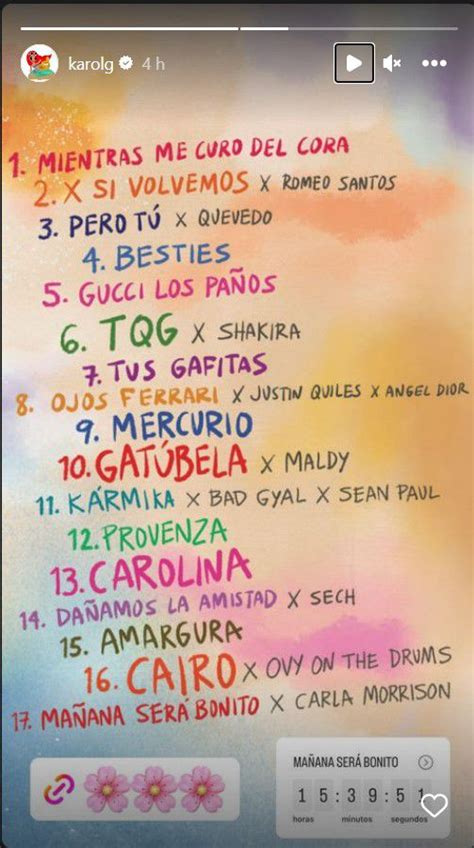 karolg 4 h
1. MIENTRAS ME CURO DEL CORA
2. X SI VOLVEMOS X ROMEO SANTOS
3. PERO TÚ X QUEVEDO
4. BESTIES
5. GUCCI LOS PAÑOS
6. TQG X SHAKIRA
7. TUS GAFITAS
8. OJOS FERRARI X JUSTIN QUILES X ANGEL DIOR
9. MERCURIO
10. GATÚBELA X MALDY
11. KÁRMIKA X BAD GYAL X SEAN PAUL
12. PROVENZA
13. CAROLINA
14. DAÑAMOS LA AMISTAD X SECH
15. AMARGURA
16. CAIRO X OVY ON THE DRUMS
17. MAÑANA SERÁ BONITO X CARLA MORRISON
MAÑANA SERÁ BONITO
15:39:51
horas minutos segundos